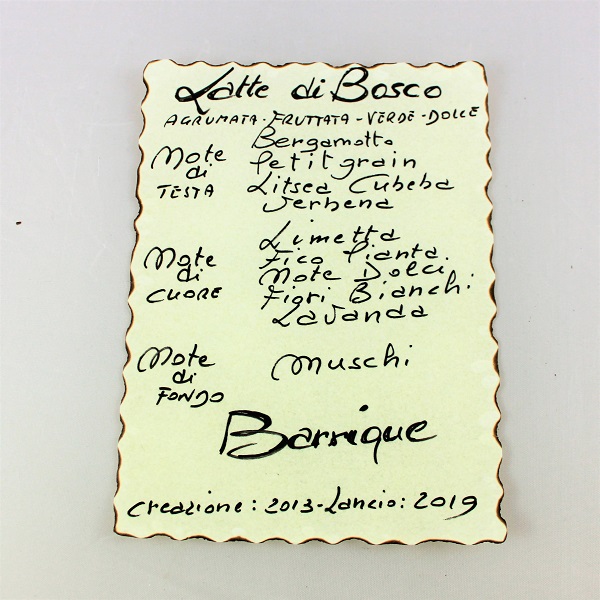 Latte di Bosco
AGRUMATA - FRUTTATA - VERDE - DOLCE
Note di TESTA
Bergamotto
Petitgrain
Litsea Cubeba
Verbena
Note di CUORE
Limetta
Fico Pianta.
Note Dolci
Fiori Bianchi
Lavanda
Note di FONDO
Muschi
Barrique
Creazione: 2013 - Lancio: 2019